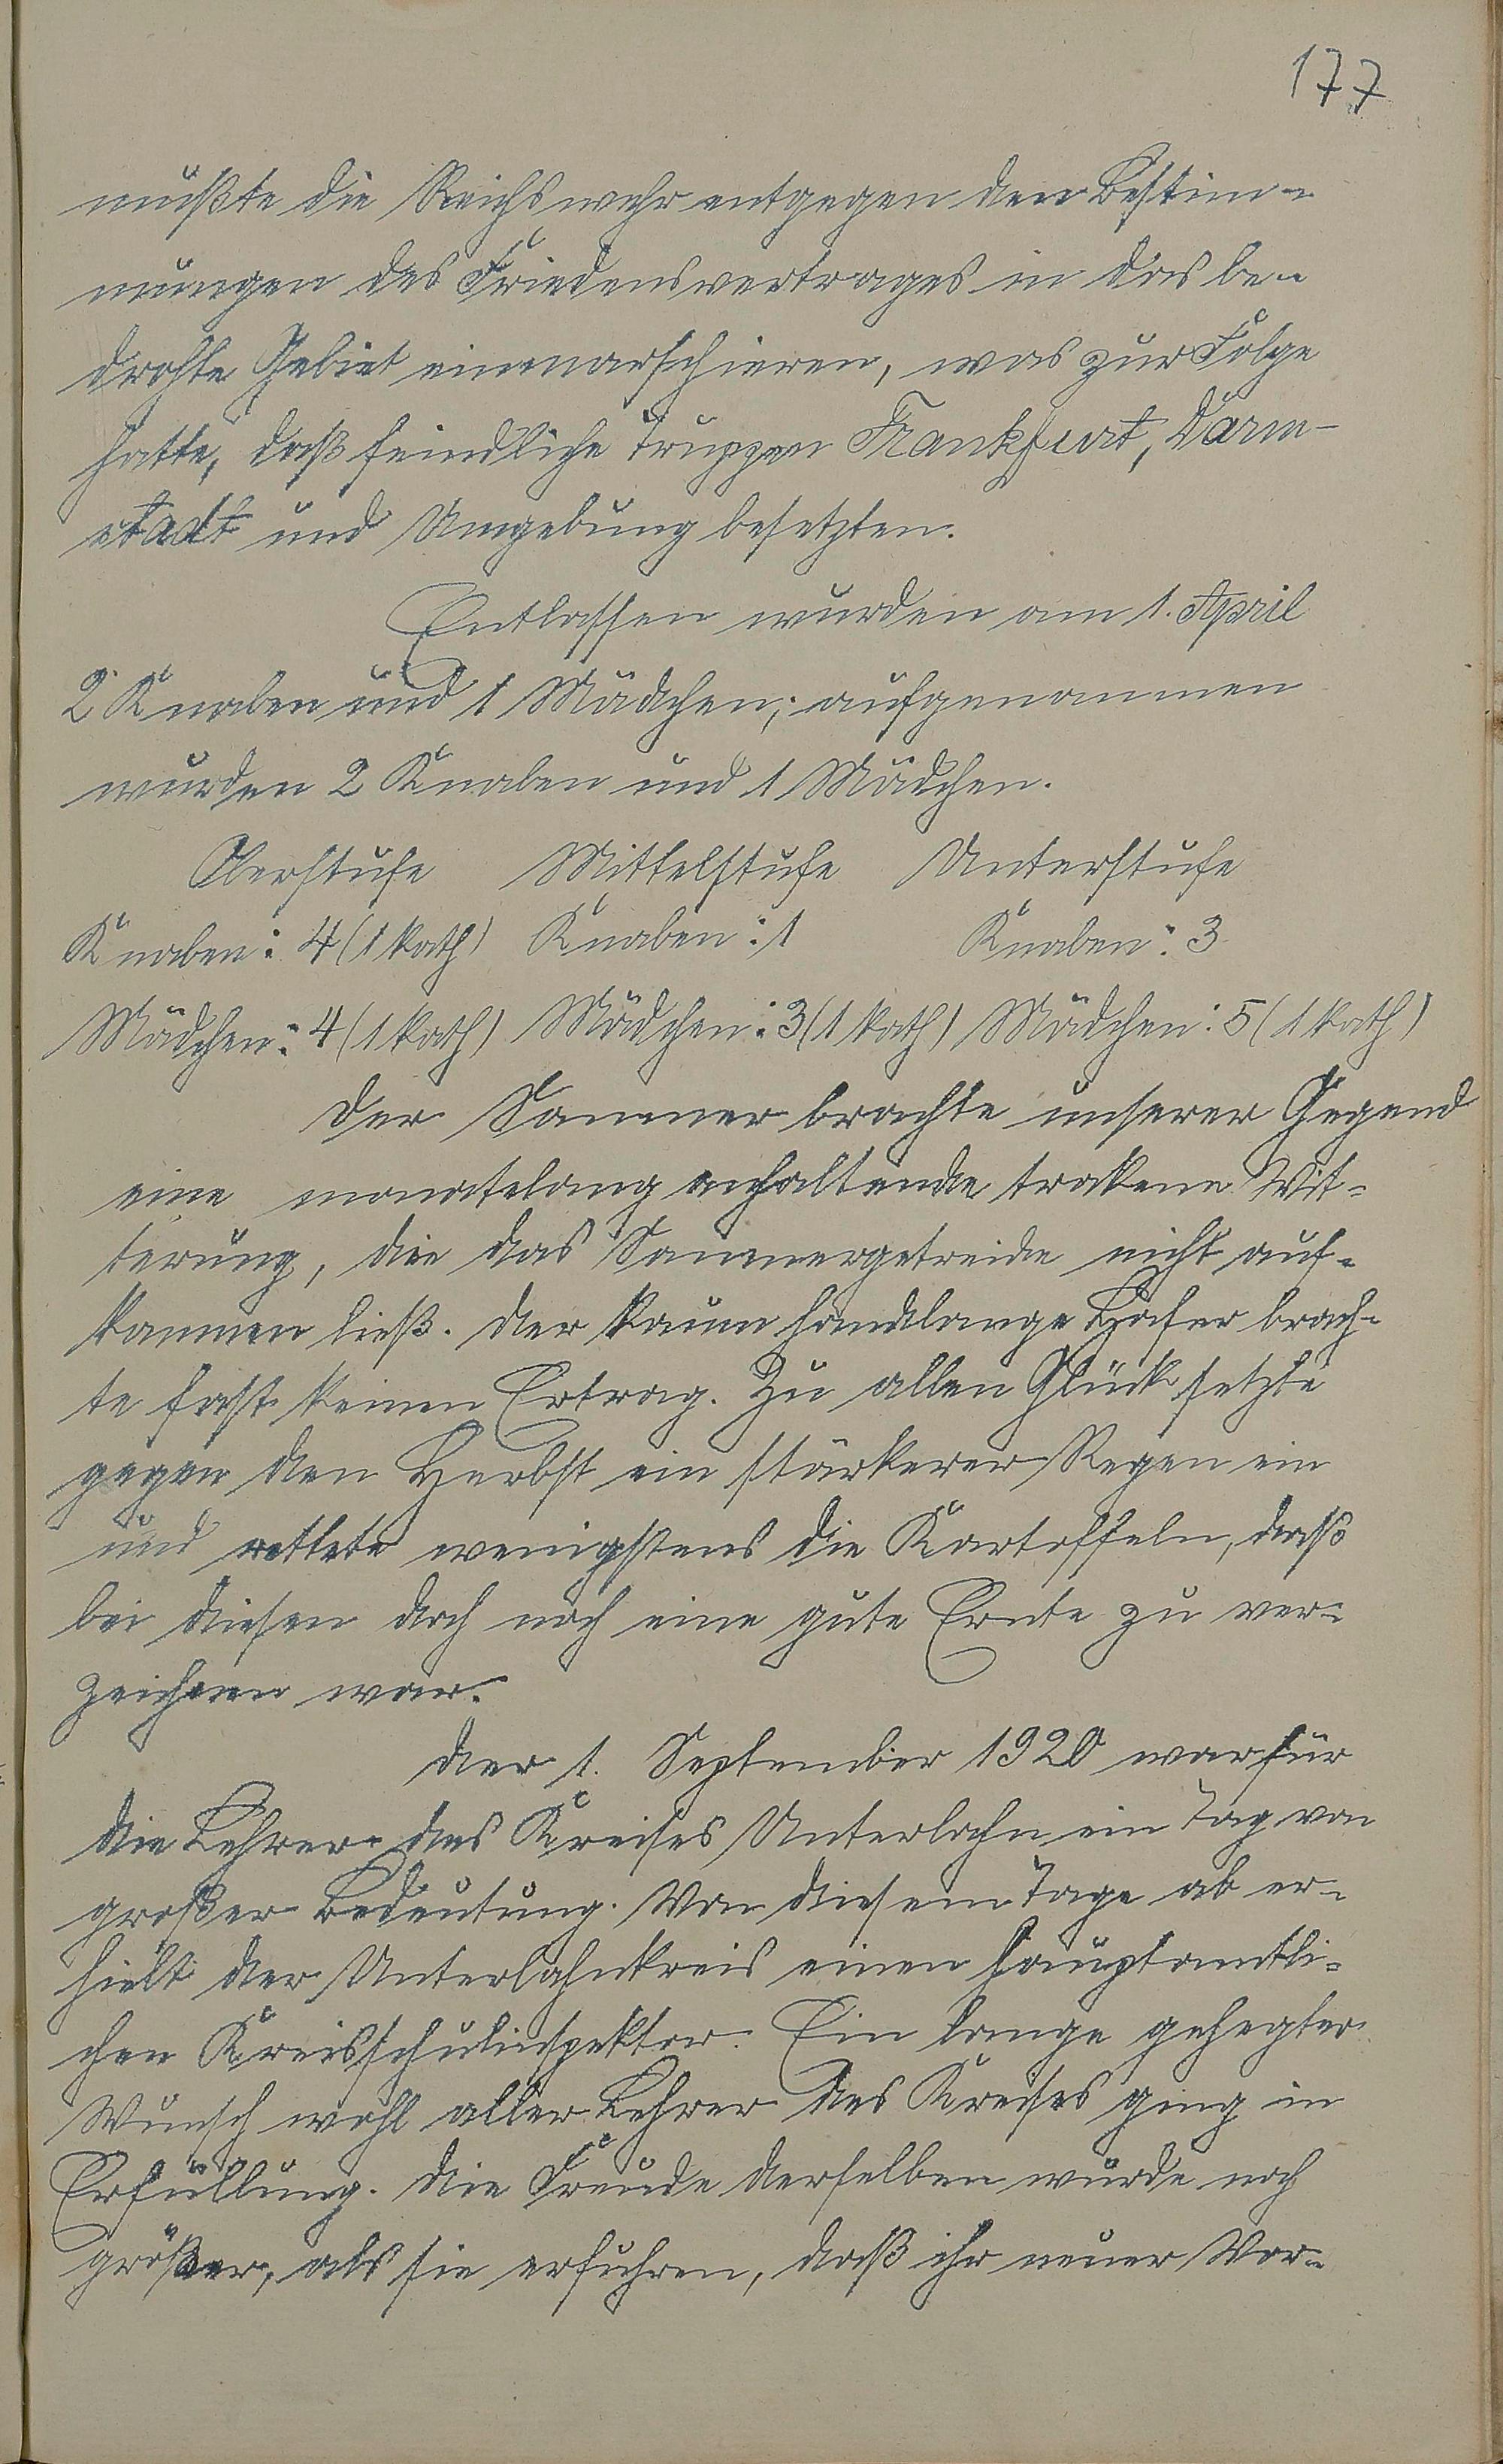 177
mußte die Reichswehr entgegen den Bestim-
mungen des Friedensvertrages in das be-
drohte Gebiet einmarschieren, was zur Folge
hatte, daß feindliche Truppen Frankfurt, Darm-
stadt und Umgebung besetzten.
Entlassen wurden am 1. April
2 Knaben und 1 Mädchen; aufgenommen
wurden 2 Knaben und 1 Mädchen.
Oberstufe Mittelstufe Unterstufe
Knaben: 4 (1 kath) Knaben: 1 Knaben: 3
Mädchen: 4 (1 kath) Mädchen: 3 (1 kath) Mädchen: 5 (1 kath)
Der Sommer brachte unserer Gegend
eine monatelang anhaltende trockene Wit-
terung, die das Sommergetreide nicht auf-
kommen ließ. Der kaum handlange Hafer brach-
te fast keinen Ertrag. Zu allen Glück setzte
gegen den Herbst ein stärkerer Regen ein
und rettete wenigstens die Kartoffeln, daß
bei diesen doch noch eine gute Ernte zu ver-
zeichnen war.
Der 1. September 1920 war für
die Lehrer des Kreises Unterlahn ein Tag von
großer Bedeutung. Von diesem Tage ab er-
hielt der Unterlahnkreis einen hauptamtli-
chen Kreisschulinspektor. Ein lange gehegter
Wunsch wohl aller Lehrer des Kreises ging in
Erfüllung. Die Freude derselben wurde noch
größer, als sie erfuhren, daß ihr neuer Vor-